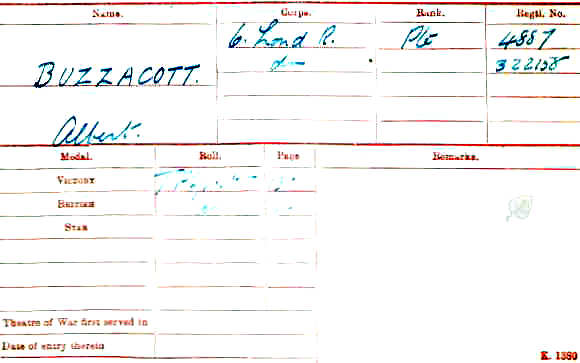 Name. Corps. Rank. Regtl. No.
6. Lond R. Pte 4887
BUZZACOTT. do 322158
Albert.
Medal. Roll. Page Remarks.
VICTORY
BRITISH
STAR
Theatre of War first served in
Date of entry therein
K. 1380